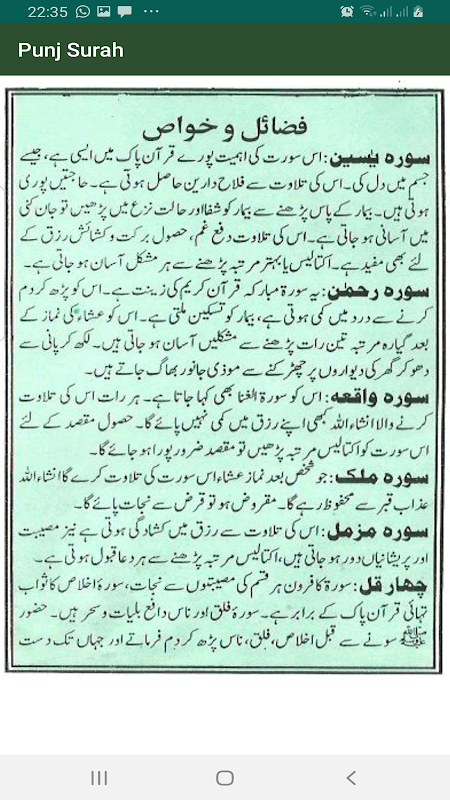 22:35
Punj Surah
فضائل و خواص
سورہ یٰسین: اس سورت کی اہمیت پورے قرآن پاک میں ایسی ہے، جیسے
جسم میں دل کی۔ اس کی تلاوت سے فلاح دارین حاصل ہوتی ہے۔ حاجتیں پوری
ہوتی ہیں۔ بیمار کے پاس پڑھنے سے بیمار کو شفا اور حالت نزع میں پڑھیں تو جان کنی
میں آسانی ہو جاتی ہے۔ اس کی تلاوت دفع غم، حصول برکت و کشائش رزق کے
لئے بھی مفید ہے۔ اکتالیس یا بہتر مرتبہ پڑھنے سے ہر مشکل آسان ہو جاتی ہے۔
سورہ رحمٰن: یہ سورۃ مبارکہ قرآن کریم کی زینت ہے۔ اس کو پڑھ کر دم
کرنے سے درد میں کمی ہوتی ہے، بیمار کو تسکین ملتی ہے۔ اس کو عشاء کی نماز کے
بعد گیارہ مرتبہ تین رات پڑھنے سے مشکلیں آسان ہو جاتی ہیں۔ لکھ کر پانی سے
دھو کر گھر کی دیواروں پر چھڑکنے سے موذی جانور بھاگ جاتے ہیں۔
سورہ واقعہ: اس کو سورۃ الغنا بھی کہا جاتا ہے۔ ہر رات اس کی تلاوت
کرنے والا انشاء اللہ کبھی اپنے رزق میں کمی نہیں پائے گا۔ حصول مقصد کے لئے
اس سورت کو اکتالیس مرتبہ پڑھیں تو مقصد ضرور پورا ہو جائے گا۔
سورہ ملک: جو شخص بعد نماز عشاء اس سورت کی تلاوت کرے گا انشاء اللہ
عذاب قبر سے محفوظ رہے گا۔ مقروض ہو تو قرض سے نجات پائے گا۔
سورہ مزمل: اس کی تلاوت سے رزق میں کشادگی ہوتی ہے نیز مصیبت
اور پریشانیاں دور ہو جاتی ہیں، اکتالیس مرتبہ پڑھنے سے ہر دعا قبول ہوتی ہے۔
چھار قل: سورۃ کافرون ہر قسم کی مصیبتوں سے نجات، سورۂ اخلاص کا ثواب
تہائی قرآن پاک کے برابر ہے۔ سورۂ فلق اور ناس دافع بلیات و سحر ہیں۔ حضور
ﷺ سونے سے قبل اخلاص، فلق، ناس پڑھ کر دم فرماتے اور جہاں تک دست